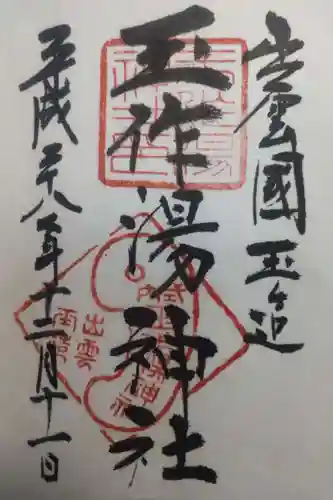 出雲國玉造
玉作湯神社
平成二十八年十二月十一日
出雲